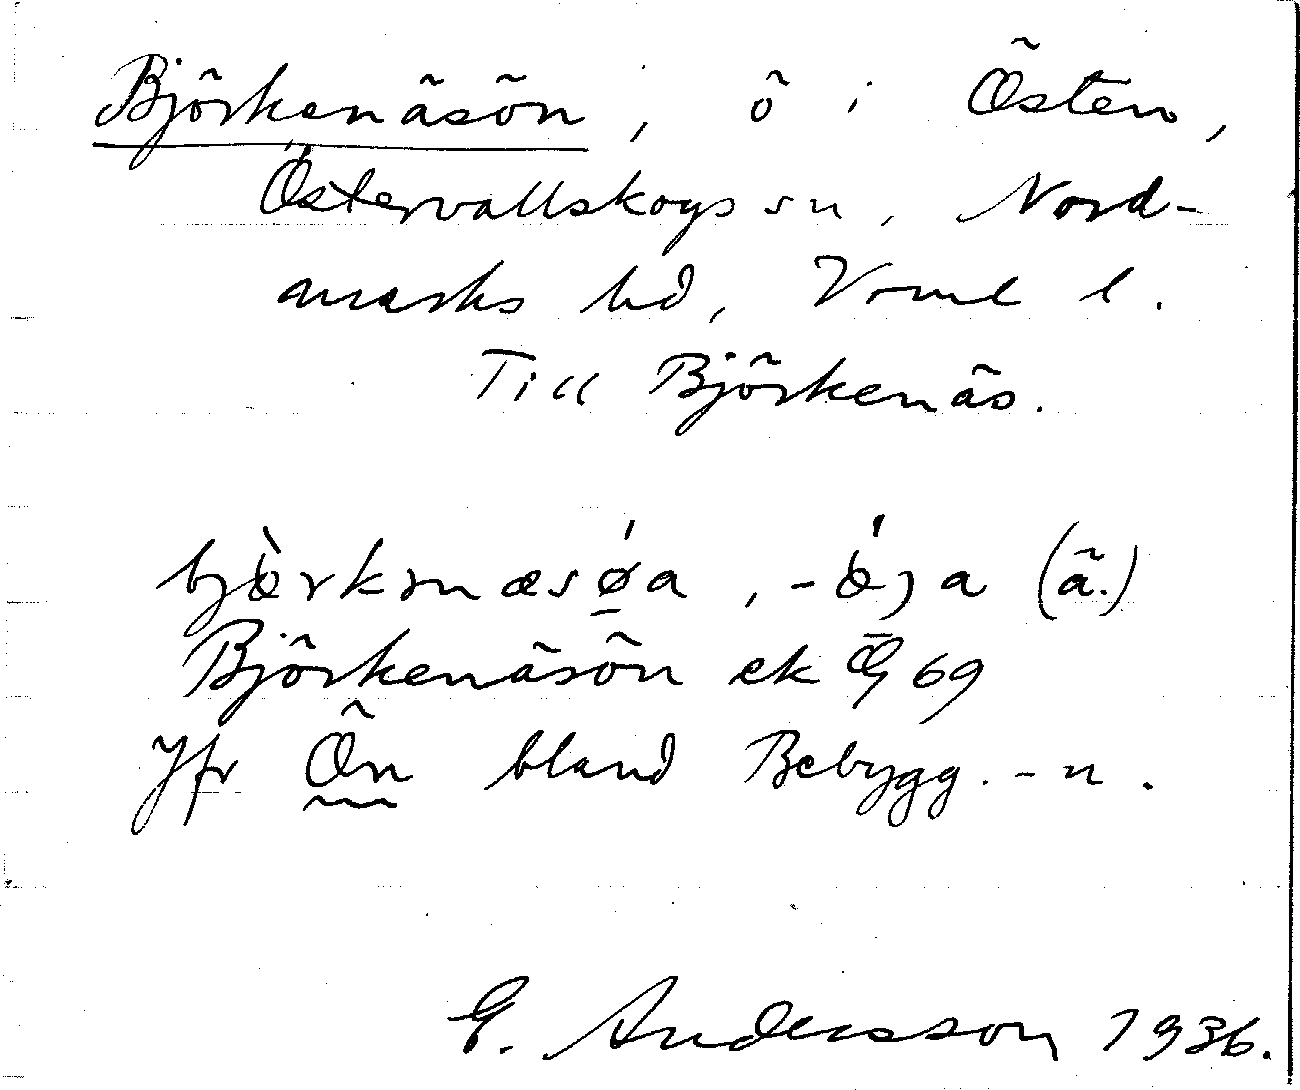 Björkenäsön, ö i Östen,
Östervallskogs sn, Nord-
marks hd, Vrml l.
Till Björkenäs.
bjœ̀rkənæsǿa, -œ́ja (ä.)
Björkenäsön ek Ög 69
Jfr Ön bland Bebygg.-n.
G. Andersson 1936.